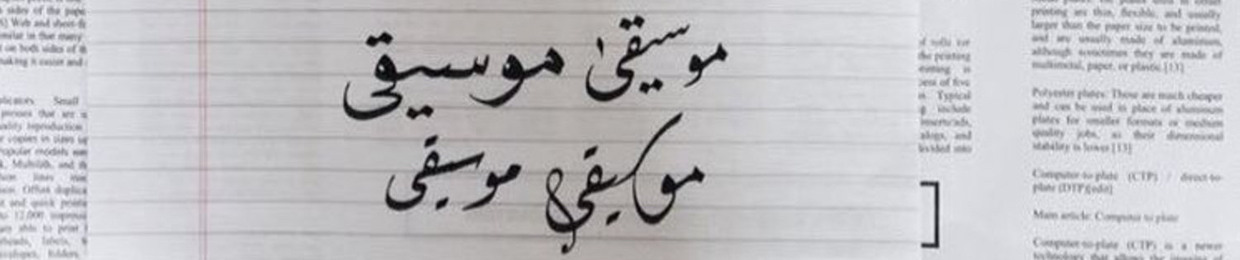 موسيقىٰ موسيقى
موسيقى موسيقى
sides of the pape
Web and sheet-f
similar in that many
on both sides of th
making it easier and
plicators Small
presses that are u
quality reproduction
copies in sizes up
Popular models
Multilith, and
Offset duplica
and quick print
to 12,000 impress
are able to print
heads, labels,
envelopes, folders,
of rolls for
the printing
printing is
cess of five
Typical
include
inserts/ads,
alogs, and
divided into
printing are thin, flexible, and usually
larger than the paper size to be printed,
and are usually made of aluminum,
although sometimes they are made of
multimetal, paper, or plastic.[13]
Polyester plates: These are much cheaper
and can be used in place of aluminum
plates for smaller formats or medium
quality jobs, as their dimensional
stability is lower.[13]
Computer-to-plate (CTP) / direct-to-
plate (DTP)[edit]
Main article: Computer to plate
Computer-to-plate (CTP) is a newer
technology that allows the imaging of